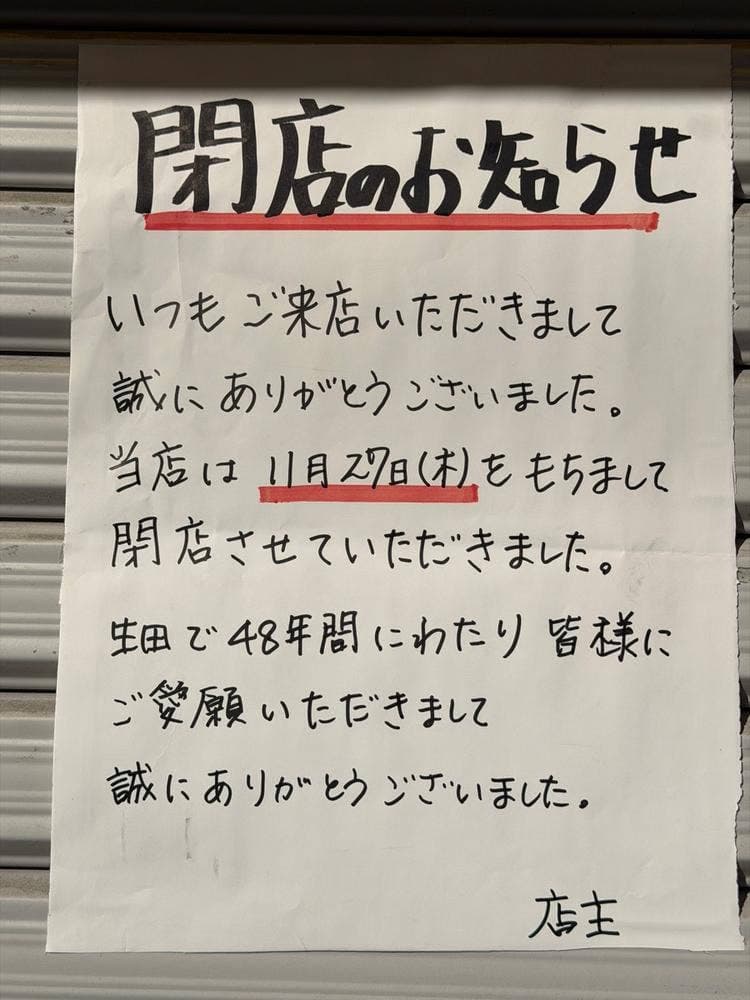 閉店のお知らせ
いつもご来店いただきまして
誠にありがとうございました。
当店は11月27日(木)をもちまして
閉店させていただきました。
生田で48年間にわたり皆様に
ご愛願いただきまして
誠にありがとうございました。
店主